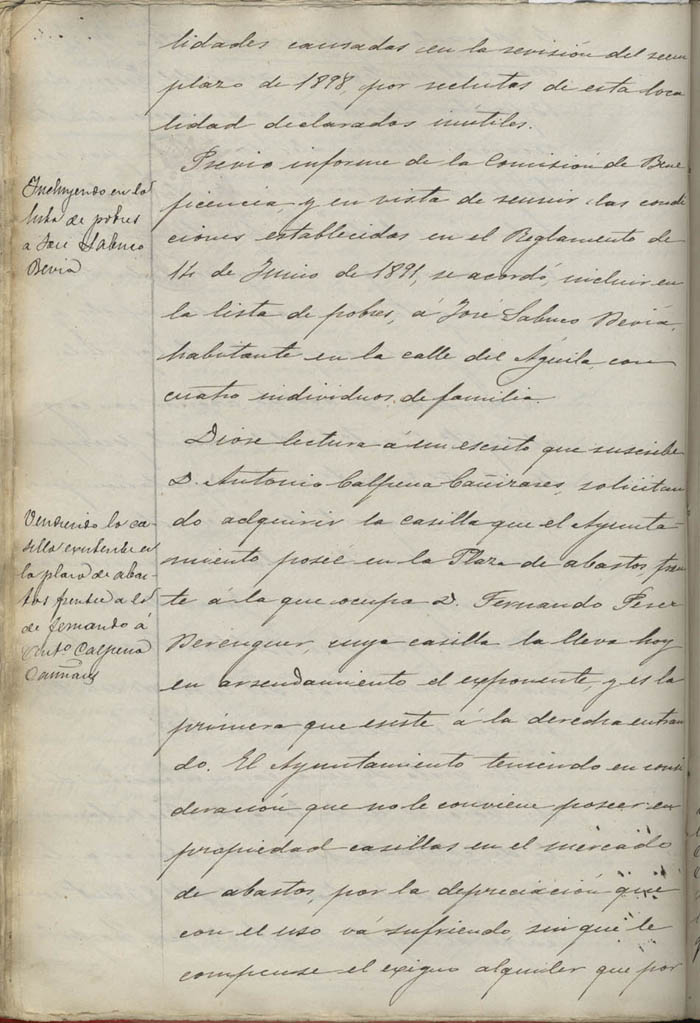 lidades causadas en la revisión del reem
plazo de 1898, por reclutas de esta loca
lidad declarados inútiles.
Incluyendo en la
lista de pobres
a José Sabuco
Beviá
Previo informe de la Comisión de Bene
ficencia, y en vista de reunir las condi
ciones establecidas en el Reglamento de
14 de Junio de 1891, se acordó, incluir en
la lista de pobres, á José Sabuco Beviá,
habitante en la calle del Águila, con
cuatro individuos de familia.
Vendiendo la ca-
silla existente en
la plaza de abas-
tos frente a la
de Fernando á
Antº Calpena
Cañizares
Diose lectura á un escrito que suscribe
D. Antonio Calpena Cañizares, solicitan
do adquirir la casilla que el Ayunta-
miento posee en la Plaza de abastos, fren
te á la que ocupa D. Fernando Perez
Berenguer, cuya casilla la lleva hoy
en arrendamiento el exponente, y es la
primera que existe á la derecha entran
do. El Ayuntamiento teniendo en consi
deración que no le conviene poseer en
propiedad casillas en el mercado
de abastos, por la depreciación que
con el uso vá sufriendo, sin que le
compense el exiguo alquiler que por